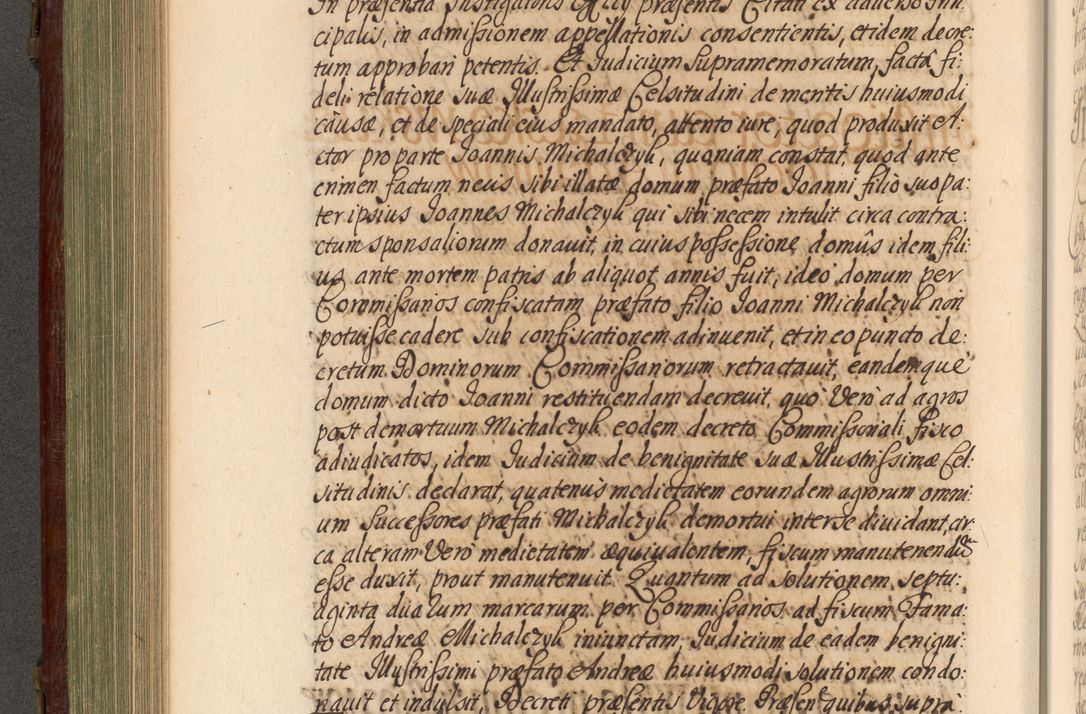 In præsentia Instigatoris Officy præsentis Citati ex adverso Prin:
cipalis, in admissionem appellationis consentientis, et idem decre:
tum approbari petentis. Et Iudicium supramemoratum, facta fi:
deli relatione suæ Illustrissimæ Celsitudini de mentis huiusmodi
causæ, et de speciali eius mandato, attento iure, quod produxit A:
ctor pro parte Ioannis Michalczyk, quoniam constat, quod ante
crimen factum necis sibi illatæ domum præfato Ioanni filio suo pa:
ter ipsius Ioannes Michalczyk qui sibi necem intulit circa contra:
ctum sponsaliorum donavit, in cuius possessione domûs idem fili:
us ante mortem patris ab aliquot annis fuit, ideo domum per
Commissarios confiscatam præfato filio Ioanni Michalczyk non
potuisse cadere sub confiscationem adinvenit, et in eo puncto de:
cretum Dominorum Commissariorum retractavit, eandemque
domum dicto Ioanni restituendam decrevit, quo Vero ad agros
post demortuum Michalczyk eodem decreto Commissoriali fisco
adiudicatos, idem Iudicium de benignitate suæ Illustrissimæ Cel:
situdinis declarat, quatenus medietatem eorundem agrorum omni:
um Successores præfati Michalczyk demortui inter se dividant, ar:
ca alteram Vero medietatem æquivalentem, fiscum manutenendũ
esse duxit, prout manutenuit. Quantum ad solutionem septu:
aginta duarum marcarum per Commissarios ad fiscum Fama:
to Andreæ Michalczyk iniunctam, Iudicium de eadem benigni:
tate Illustrissimi præfato Andreæ huiusmodi solutionem condo:
navit et indulsit, Decreti præsentis Vigore. Præsentibus supra